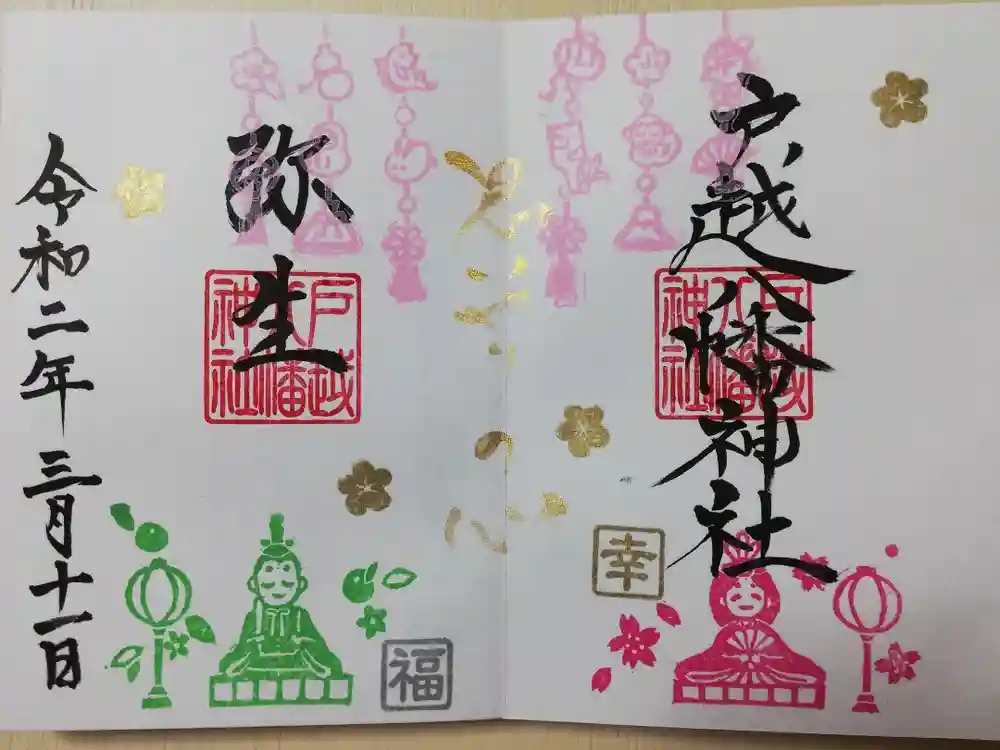 戸越八幡神社
戸越
八幡
神社
幸
弥生
戸越
八幡
神社
福
令和二年 三月十一日